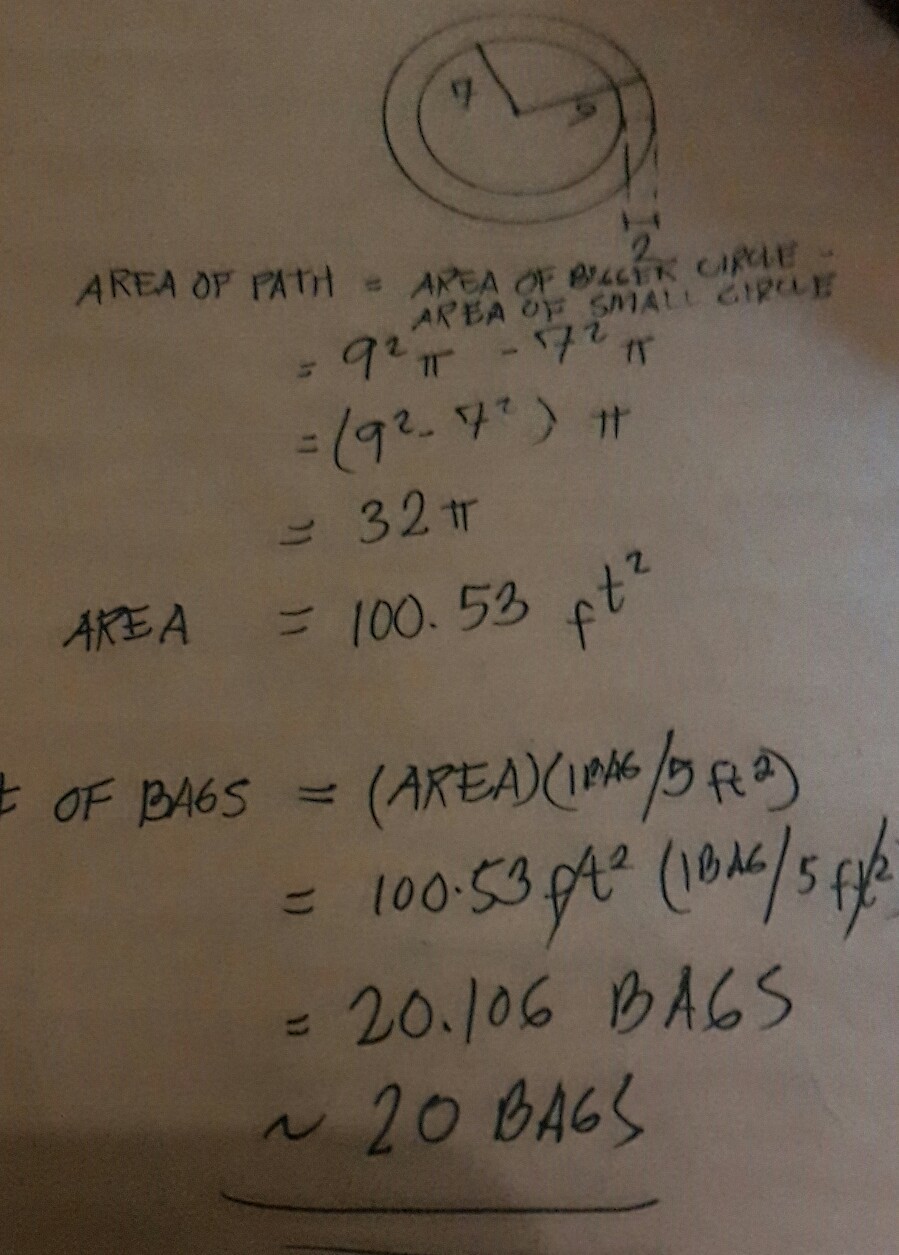 7 9
2
AREA OF PATH = AREA OF BIGGER CIRCLE -
AREA OF SMALL CIRCLE
= 9²π - 7²π
= (9² - 7²) π
= 32π
AREA = 100.53 ft²
OF BAGS = (AREA)(1BAG/5 ft²)
= 100.53 ft² (1BAG/5 ft²
= 20.106 BAGS
~ 20 BAGS